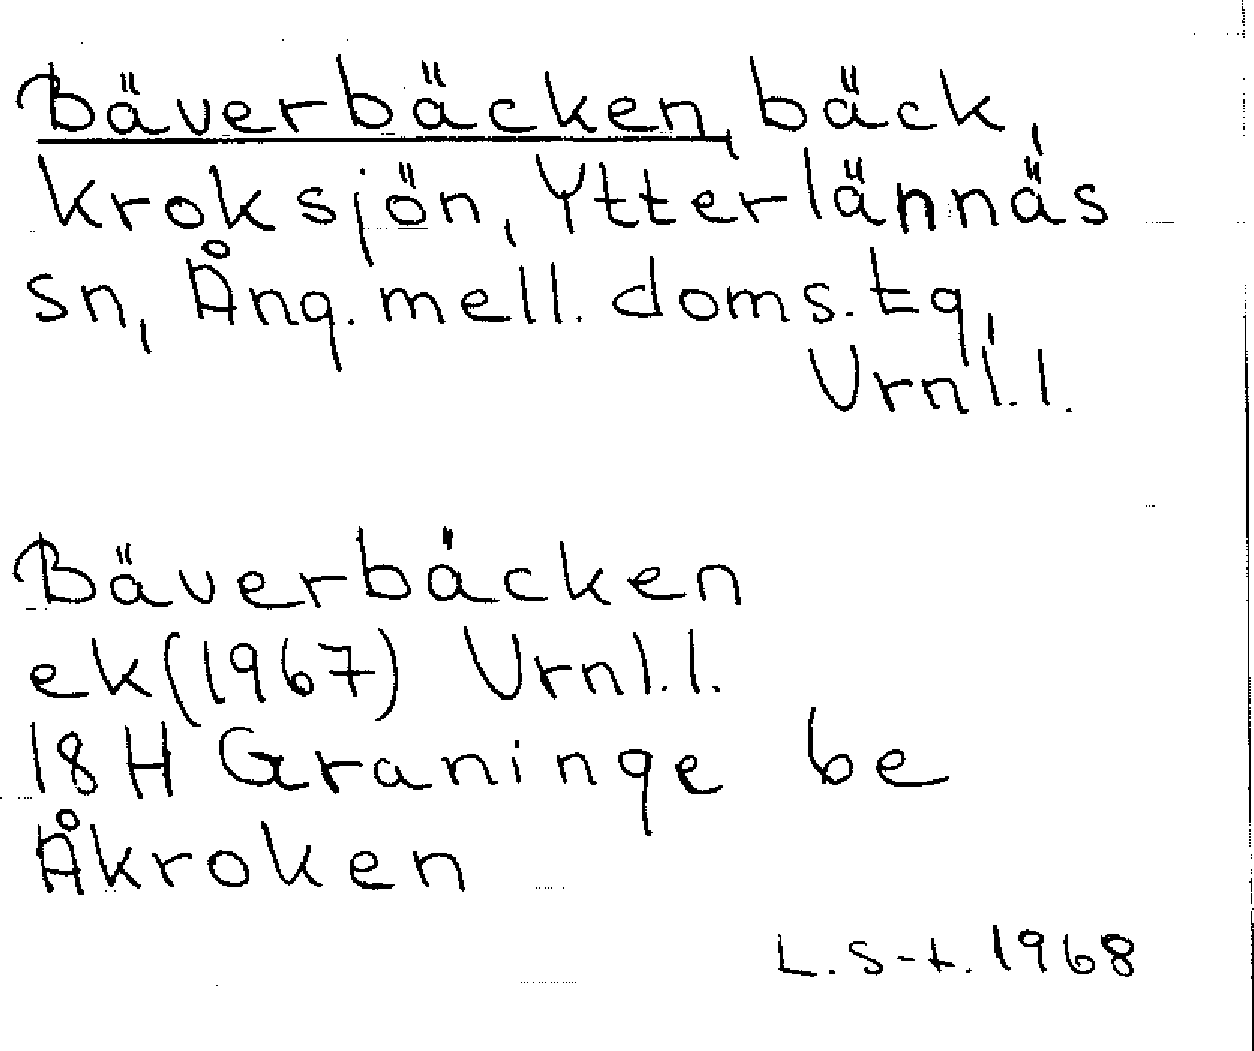 Bäverbäcken, bäck,
kroksjön, Ytterlännäs
sn, Ång. mell. doms. tg,
Vrnl. l.
Bäverbäcken
ek (1967) Vrnl. l.
18 H Graninge be
Åkroken
L. S-t. 1968